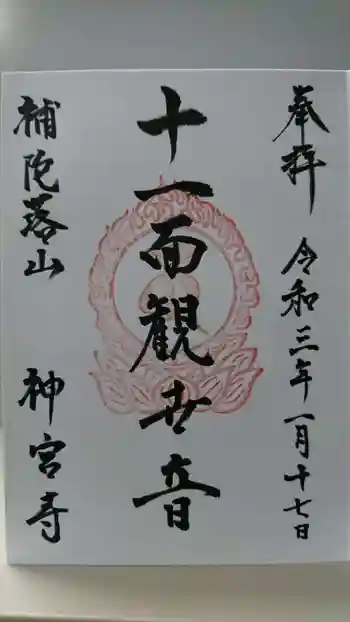 奉拝 令和三年一月十七日
十一面観世音
補陀落山 神宮寺